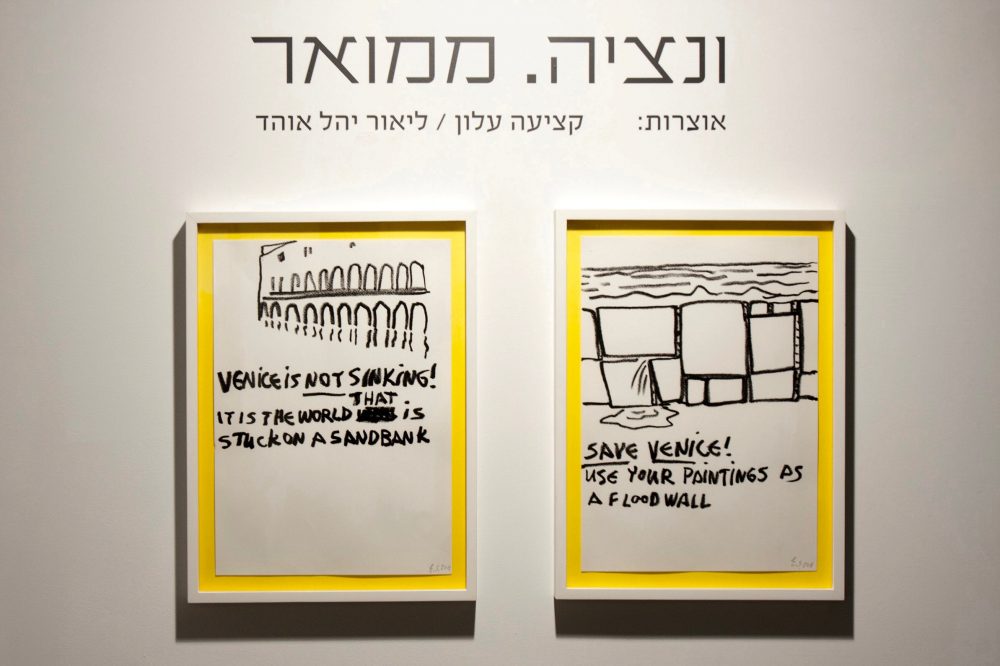 ונציה. ממואר
אוצרות: קציעה עלון / ליאור יהל אוהד
VENICE IS NOT SINKING!
THAT
IT IS THE WORLD IS
STUCK ON A SANDBANK
SAVE VENICE!
USE YOUR PAINTINGS AS
A FLOOD WALL